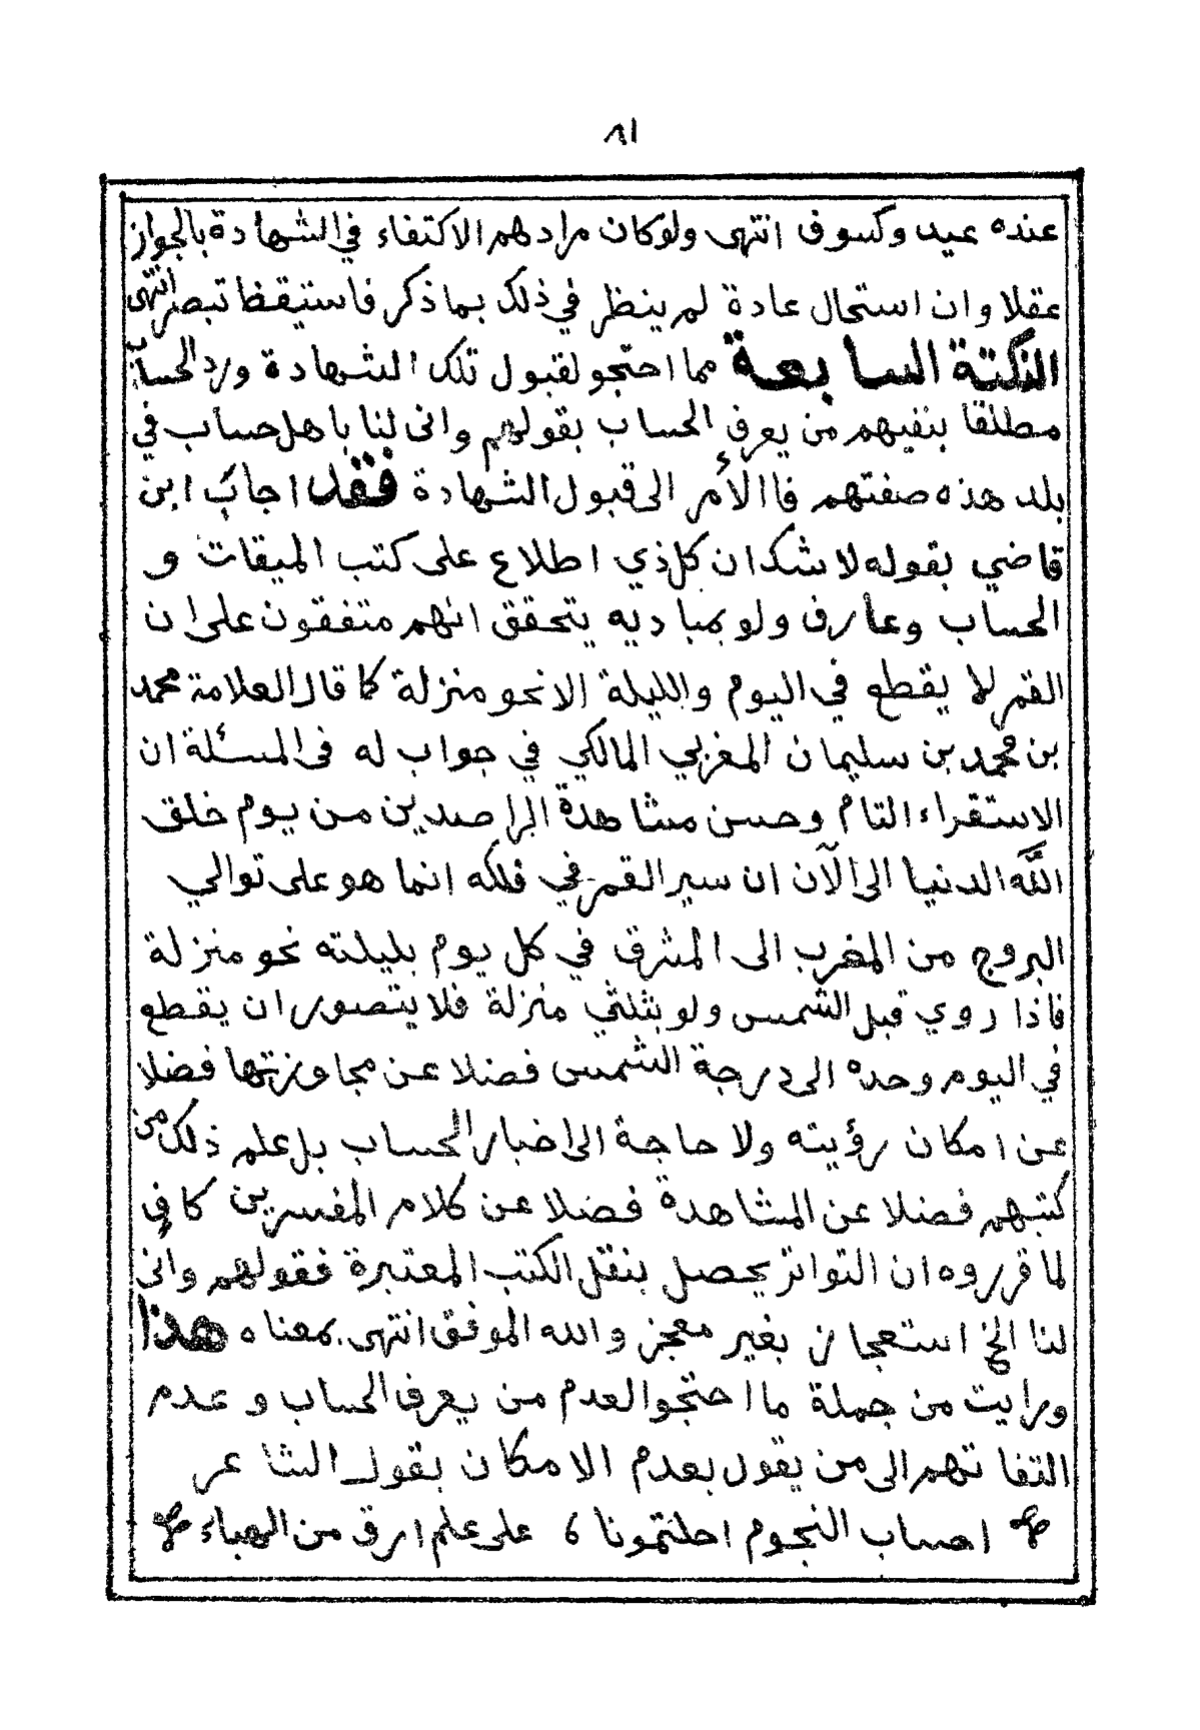 ٨١
عنده عيد وكسوف انتهى ولوكان مرادهم الاكتفاء في الشهادة بالجواز
عقلا وان استحال عادة لم ينظر في ذلك بما ذكر فاستيقظ تبصر انتهى
النكتة السابعة مما احتجو لقبول تلك الشهادة ورد الحساب
مطلقا بنفيهم من يعرف الحساب بقولهم وانى لنا باهل حساب في
بلد هذه صفتهم فاالأمر الى قبول الشهادة فقد اجاب ابن
قاضي بقوله لا شك ان كل ذي اطلاع على كتب الميقات و
الحساب وعارف ولو بمباديه يتحقق انهم متفقون على ان
القمر لا يقطع في اليوم والليلة الا نحو منزلة كما قال العلامة محمد
بن محمد بن سليمان المغربي المالكي في جواب له فى المسئلة ان
الاستقراء التام وحسن مشاهدة الراصدين من يوم خلق
الله الدنيا الى الآن ان سير القمر في فلكه انما هو على توالي
البروج من المغرب الى المشرق في كل يوم بليلته نحو منزلة
فاذا روي قبل الشمس ولو بثلثي منزلة فلا يتصور ان يقطع
في اليوم وحده الى درجة الشمس فضلا عن مجاوزتها فضلا
عن امكان رؤيته ولا حاجة الى اخبار الحساب بل علم ذلك من
كتبهم فضلا عن المشاهدة فضلا عن كلام المفسرين كافٍ
لما قرروه ان التواتر يحصل بنقل الكتب المعتبرة فقولهم وانى
لنا الخ استعجاز بغير معجز والله الموفق انتهى بمعناه هذا
ورايت من جملة ما احتجوا لعدم من يعرف الحساب و عدم
التفاتهم الى من يقول بعدم الامكان بقول الشاعر
احساب النجوم احلتمونا ، على علم ارق من الهباء